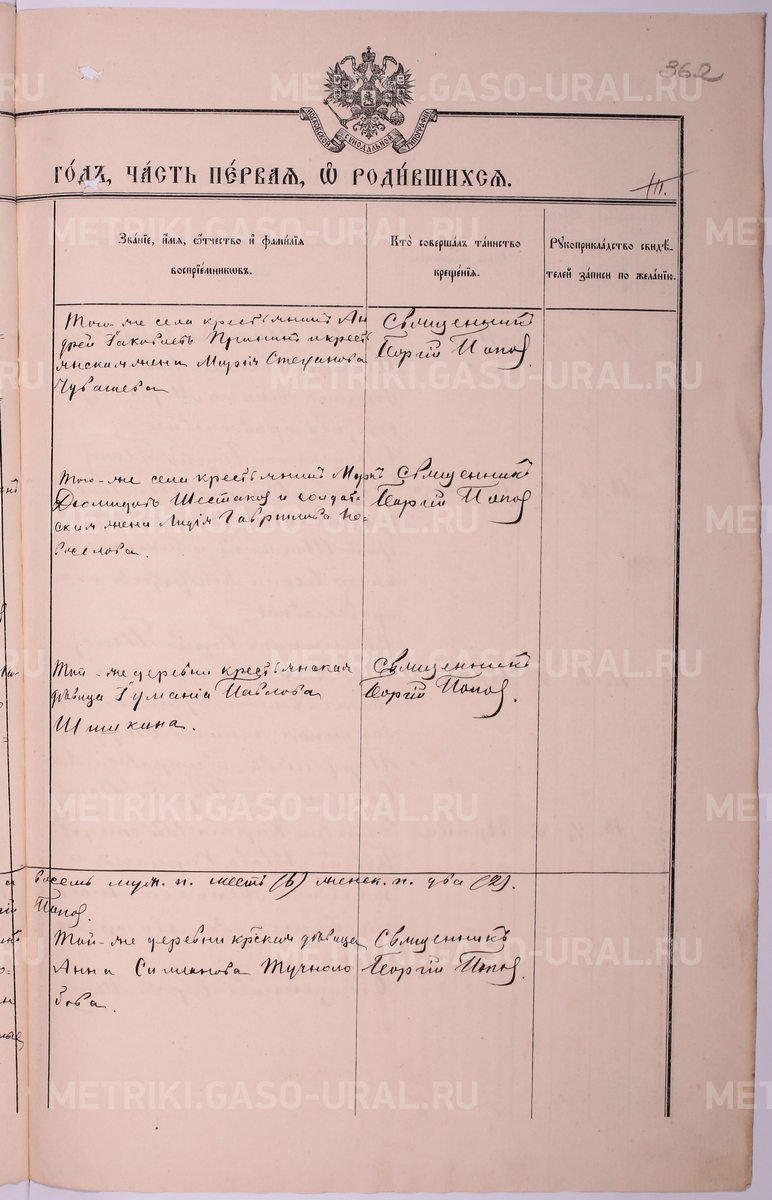 362
МОСКОВСКОЙ СУНОДАЛЬНОЙ ТИПОГРАФІИ
METRIKI.GASO-URAL.RU
го́дъ, ча́сть пе́рвая, ѡ҆ роди́вшихся.
Зва́нїе, и҆́мя, ѻ҆́тчество и҆ фами́лїя
воспрїе́мникѡвъ.
Кто̀ соверша́лъ та́инство
креще́нїя.
Рꙋкоприкла́дство свидѣ́-
телей за́писи по жела́нїю.
Того-же села крестьянинъ Ан
дрей Іаковлевъ и крест
янская жена Марія Стефанова
Чувашева
Священникъ
Георгій Попов.
Того-же села крестьянинъ Маркъ
Діомидовъ Шестаков и солдат-
ская жена Лидія Гаврилова Но-
воселова.
Священникъ
Георгій Попов
Той-же деревни крестьянская
дѣвица Павлова
Шишкина.
Священникъ
Георгій Попов.
восемь муж. п. шесть (6) женск. п. два (2).
Попов.
Той-же деревни кр-ская дѣвица
Анна Симеанова Тучноло
бова.
Священникъ
Георгій Попов.